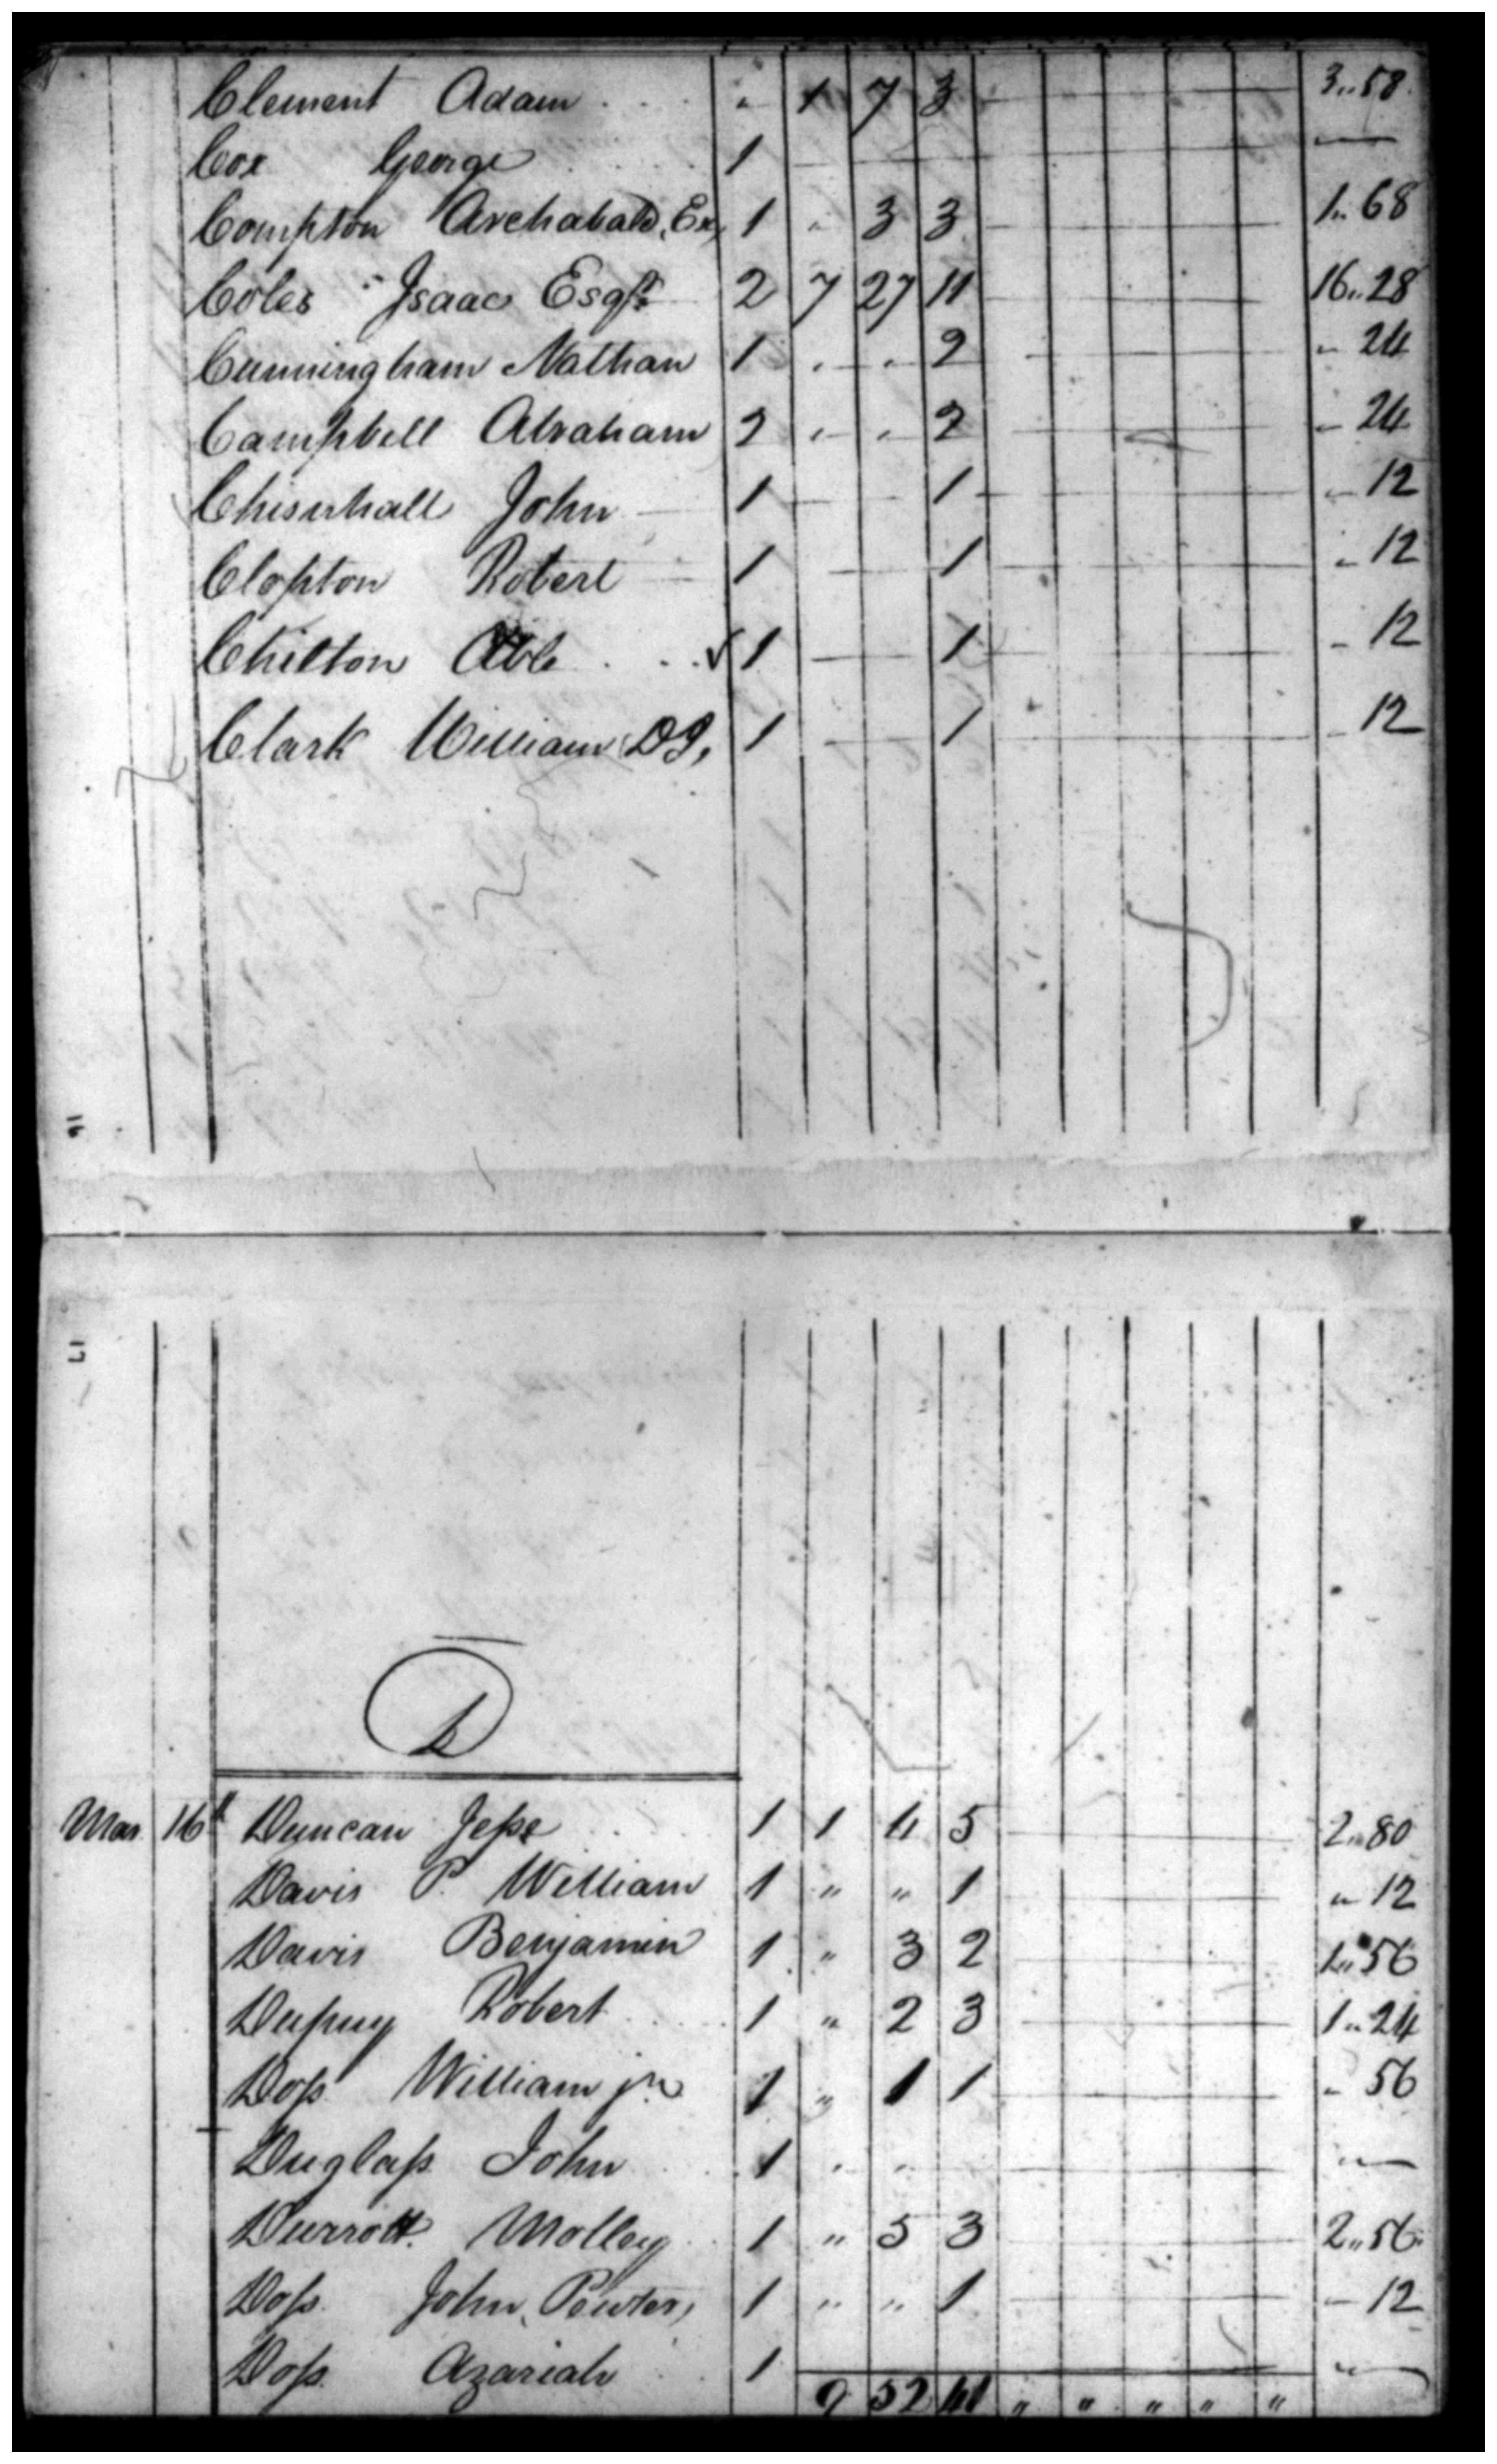 Clement Adam . . . . " 1 7 3 3..58
Cox George . . . 1 —
Compton Archabald, Ex, 1 " 3 3 1.. 68
Coles Isaac Esqr. 2 7 27 11 16..28
Cunningham Nathan 1 " " 2 " 24
Campbell Abraham 2 " " 2 " 24
Chisenhall John 1 1 " 12
Clopton Robert 1 1 " 12
Chilton Able . . . 1 1 " 12
Clark William DG, 1 1 " 12
16
17
D
Mar 16th Duncan Jesse 1 1 4 5 2..80
Davis P. William 1 " " 1 " 12
Davis Benjamin 1 " 3 2 1..56
Dupuy Robert 1 " 2 3 1..24
Doss William jr. 1 " 1 1 " 56
Duglass John 1 " " —
Durrott Molley 1 " 5 3 2..56
Doss John, Pewter, 1 " " 1 " 12
Doss Azariah 1 —
9 52 41 " " " " "